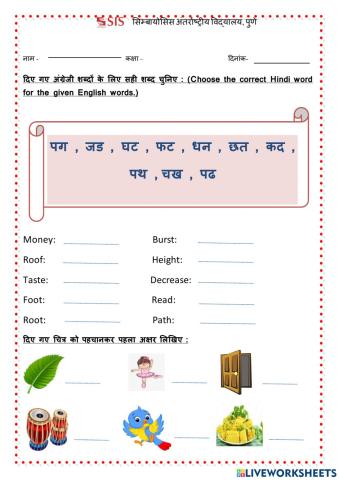 SIS सिम्बायोसिस अंतरराष्ट्रीय विद्यालय, पुणे
नाम - कक्षा – दिनांक-
दिए गए अंग्रेजी शब्दों के लिए सही शब्द चुनिए : (Choose the correct Hindi word
for the given English words.)
पग , जड , घट , फट , धन , छत , कद ,
पथ , चख , पढ
Money: Burst:
Roof: Height:
Taste: Decrease:
Foot: Read:
Root: Path:
दिए गए चित्र को पहचानकर पहला अक्षर लिखिए :
LIVEWORKSHEETS